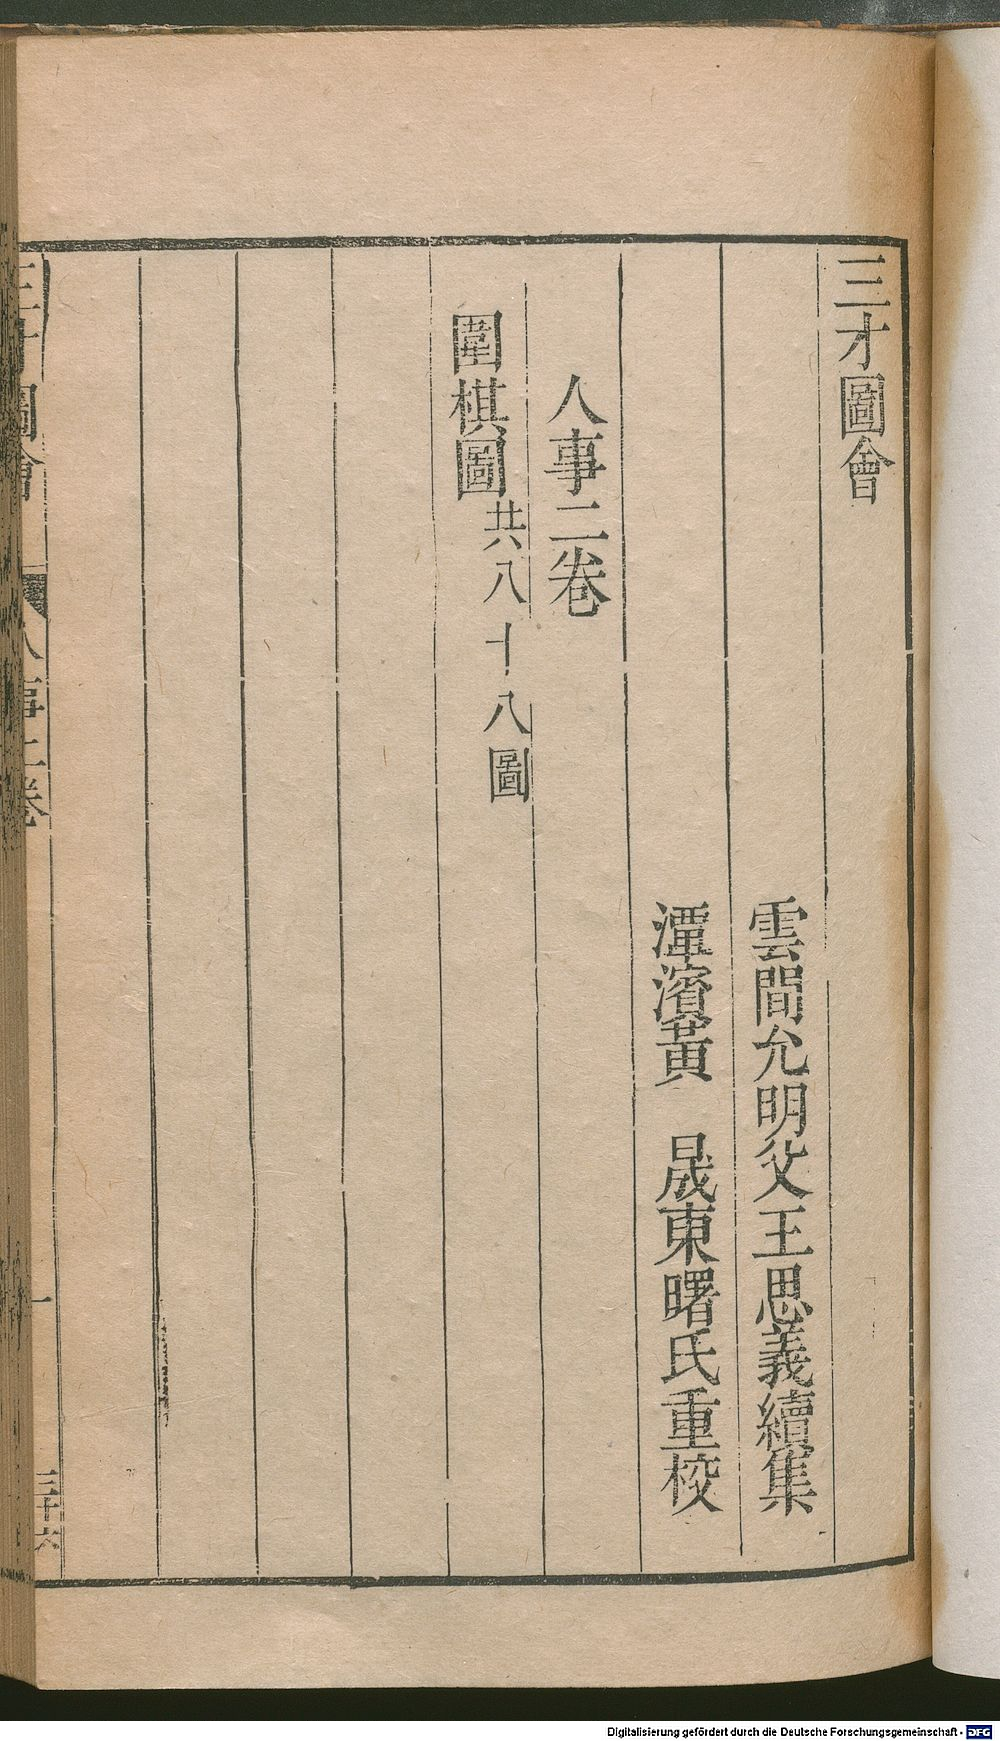 三才圖會
雲間允明父王思義續集
潭濱黃 晟東曙氏重校
人事二卷
圍棋圖共八十八圖
三才圖會 人事二卷 一 三十六
Digitalisierung gefördert durch die Deutsche Forschungsgemeinschaft - DFG